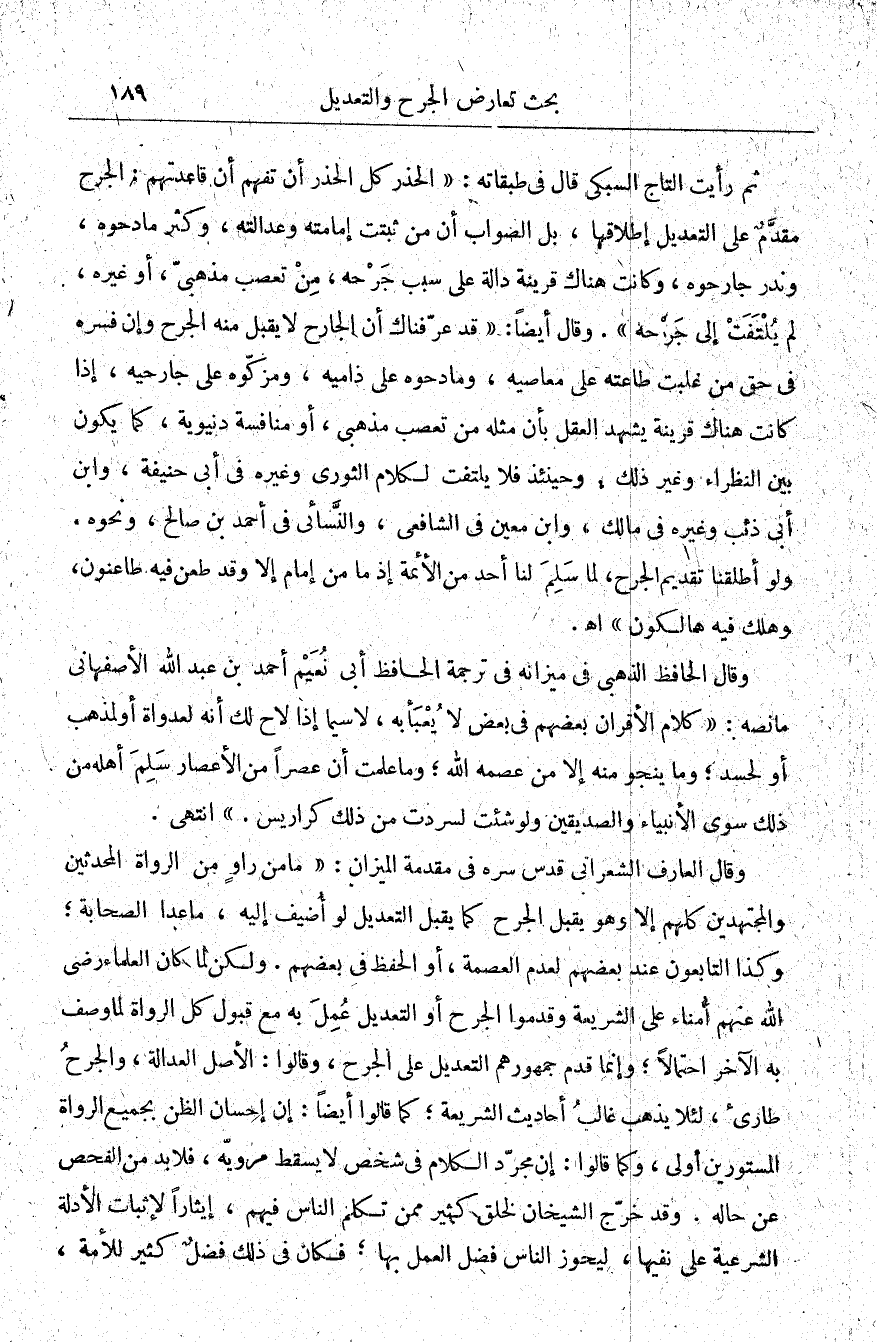 بحث تعارض الجرح والتعديل ١٨٩
ثم رأيت التاج السبكي قال فى طبقاته : « الحذر كل الحذر أن تفهم أن قاعدتهم : الجرح
مقدَّمٌ على التعديل إطلاقها ، بل الصواب أن من ثبتت إمامته وعدالته ، وكثر مادحوه ،
وندر جارحوه ، وكانت هناك قرينة دالة على سبب جَرْحه ، مِنْ تعصب مذهبىّ ، أو غيره ،
لم يُلْتَفَتْ إلى جَرْحه » . وقال أيضاً : « قد عرّفناك أن الجارح لا يقبل منه الجرح وإن فسره
فى حق من غلبت طاعته على معاصيه ، ومادحوه على ذاميه ، ومزكّوه على جارحيه ، إذا
كانت هناك قرينة يشهد العقل بأن مثله من تعصب مذهبى ، أو منافسة دنيوية ، كما يكون
بين النظراء وغير ذلك ، وحينئذ فلا يلتفت لكلام الثورى وغيره فى أبى حنيفة ، وابن
أبى ذئب وغيره فى مالك ، وابن معين فى الشافعى ، والنَّسائى فى أحمد بن صالح ، ونحوه .
ولو أطلقنا تقديم الجرح ، لما سَلِمَ لنا أحد من الأئمة إذ ما من إمام إلا وقد طعن فيه طاعنون ،
وهلك فيه هالكون » اه .
وقال الحافظ الذهبى فى ميزانه فى ترجمة الحافظ أبى نُعَيْم أحمد بن عبد الله الأصفهانى
مانصه : « كلام الأقران بعضهم فى بعض لا يُعْبَأ به ، لاسيما إذا لاح لك أنه لعدواة أولمذهب
أو لحسد ؛ وما ينجو منه إلا من عصمه الله ؛ وماعلمت أن عصراً من الأعصار سَلِمَ أهله من
ذلك سوى الأنبياء والصديقين ولوشئت لسردت من ذلك كراريس . » انتهى .
وقال العارف الشعرانى قدس سره فى مقدمة الميزان : « مامن راوٍ من الرواة المحدثين
والمجتهدين كلهم إلا وهو يقبل الجرح كما يقبل التعديل لو أُضيف إليه ، ماعدا الصحابة ؛
وكذا التابعون عند بعضهم لعدم العصمة ، أو الحفظ فى بعضهم . ولكن لما كان العلماء رضى
الله عنهم أُمناء على الشريعة وقدموا الجرح أو التعديل عُمِلَ به مع قبول كل الرواة لماوصف
به الآخر احتمالاً ؛ وإنما قدم جمهورهم التعديل على الجرح ، وقالوا : الأصل العدالة ، والجرحُ
طارىءٌ ، لئلا يذهب غالبُ أحاديث الشريعة ؛ كما قالوا أيضاً : إن إحسان الظن بجميع الرواة
المستورين أولى ، وكما قالوا : إن مجرّد الكلام فى شخص لا يسقط مرويّه ، فلابد من الفحص
عن حاله . وقد خرّج الشيخان لخلق كثير ممن تكلم الناس فيهم ، إيثاراً لإثبات الأدلة
الشرعية على نفيها ، ليحوز الناس فضل العمل بها ؛ فكان فى ذلك فضلٌ كثير للأمة ،